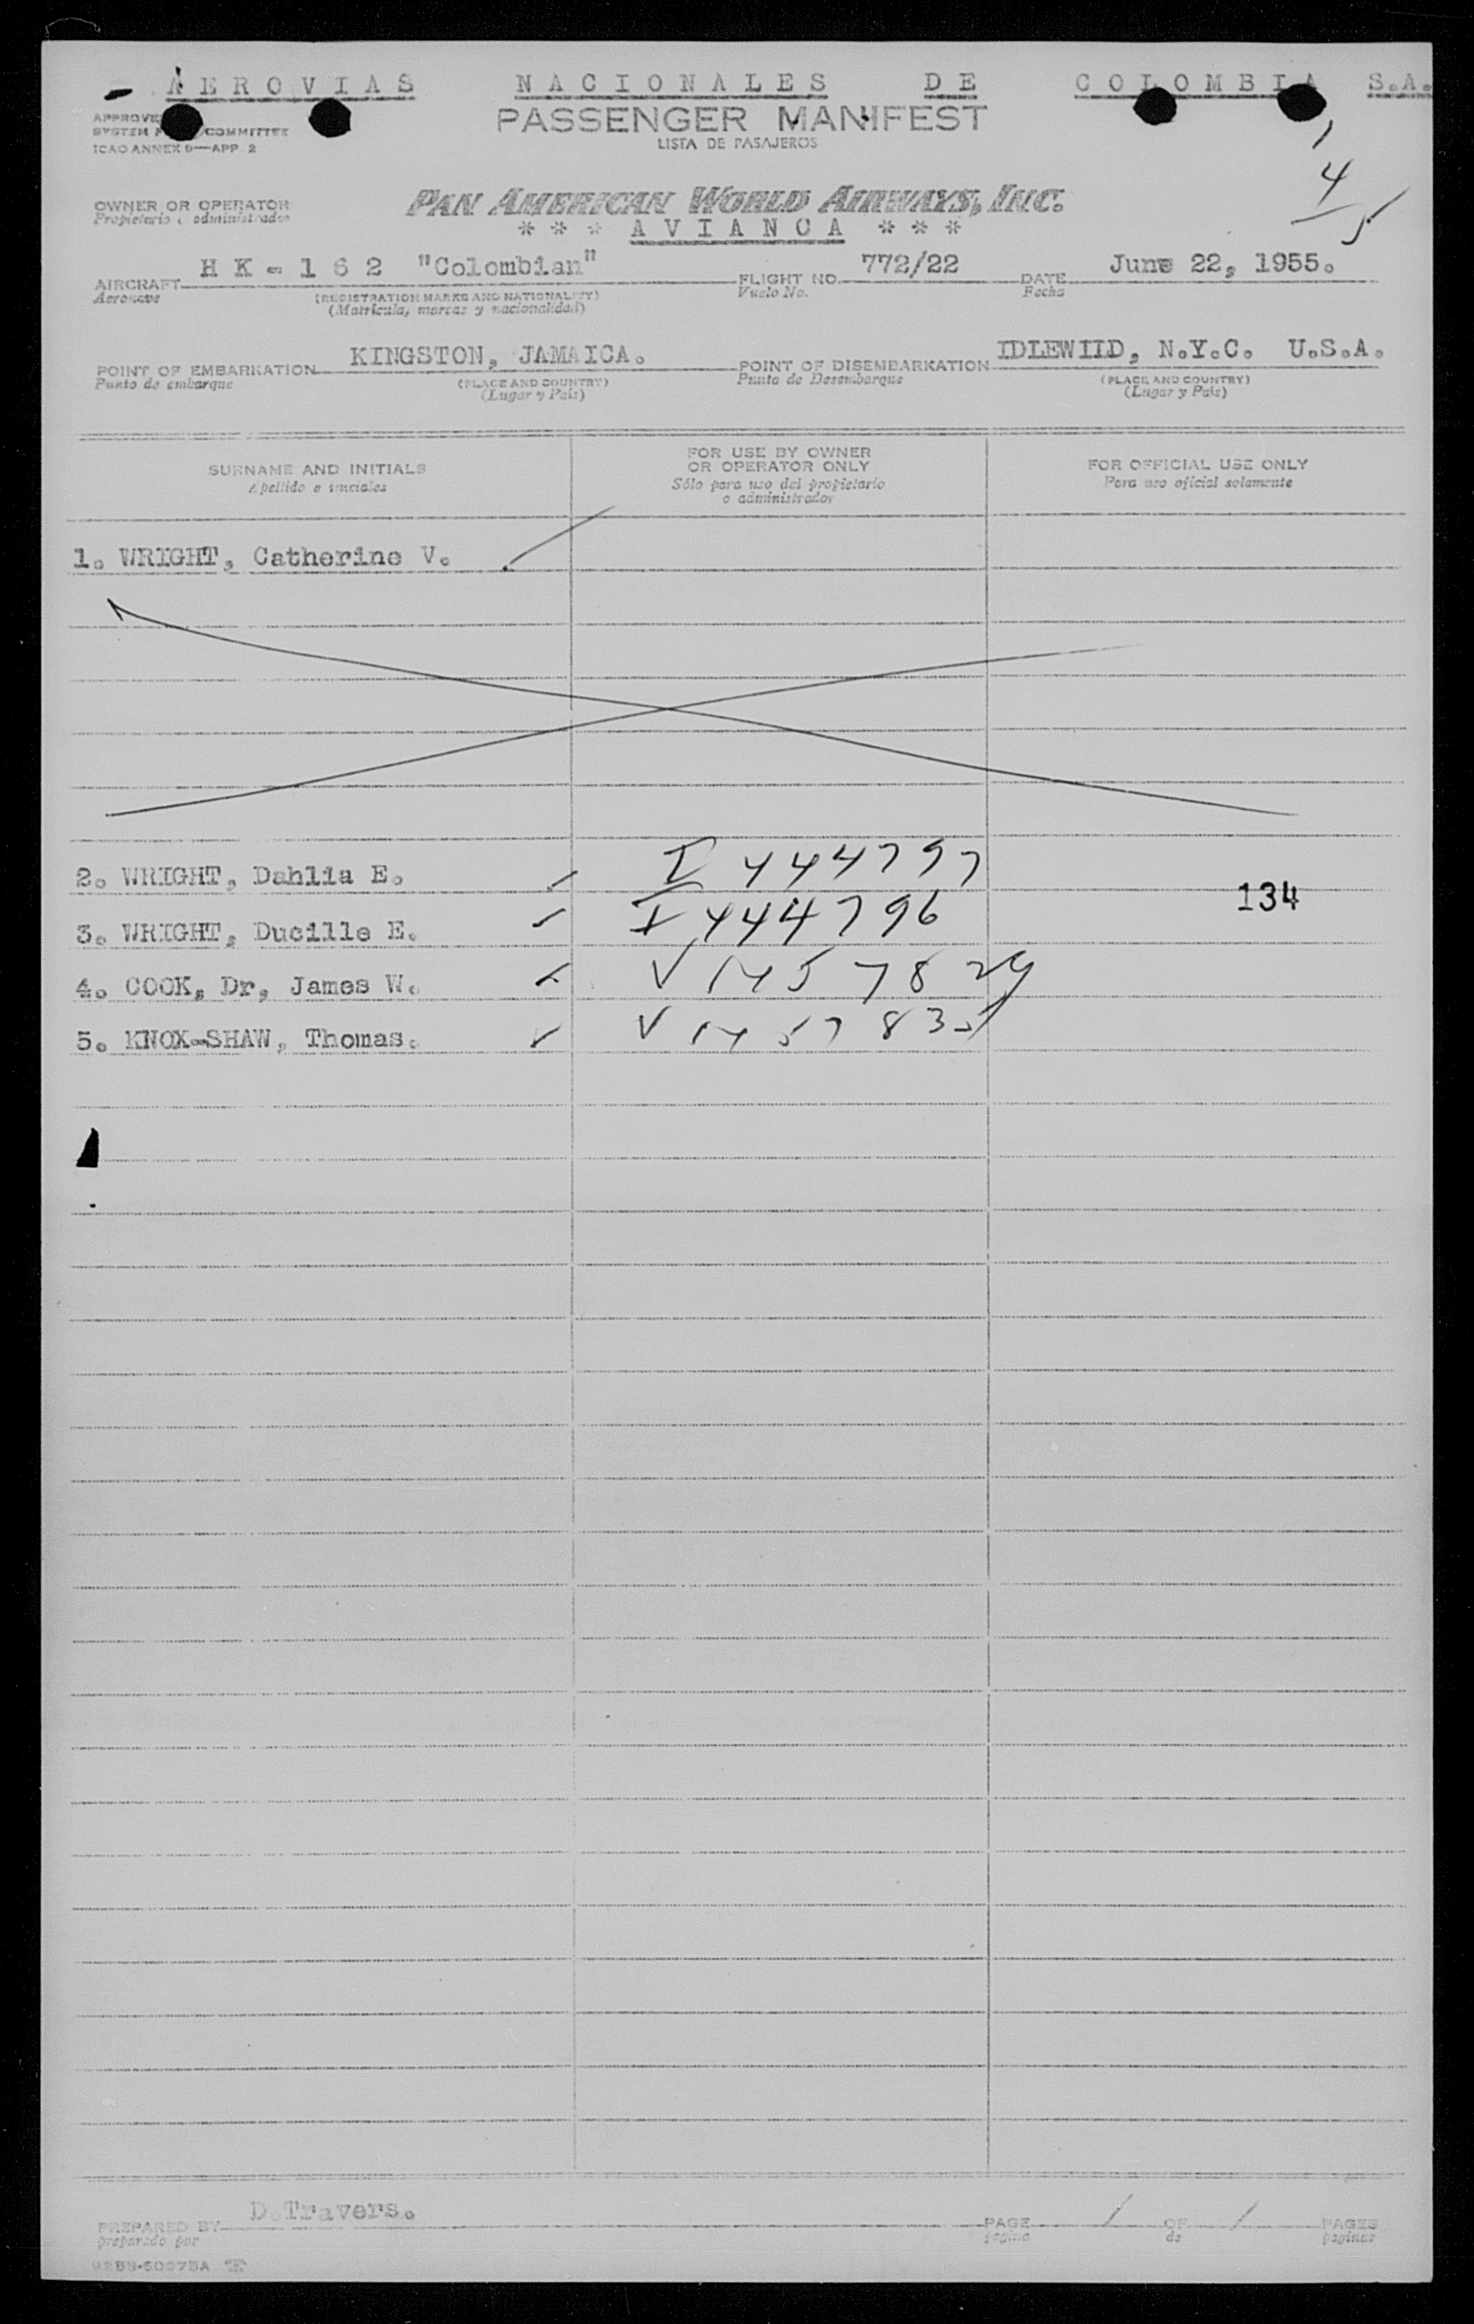 AEROVIAS NACIONALES DE COLOMBIA S.A.
PASSENGER MANIFEST
LISTA DE PASAJEROS
SYSTEM COMMITTEE
ICAO ANNEX 9—APP 2
1
4
5
OWNER OR OPERATOR
Propietario o administrador
PAN AMERICAN WORLD AIRWAYS, INC.
* * * AVIANCA * * *
AIRCRAFT H K - 1 6 2 "Colombian" FLIGHT NO. 772/22 DATE June 22, 1955.
Aeronave (REGISTRATION MARKS AND NATIONALITY) Vuelo No. Fecha
(Matrícula, marcas y nacionalidad)
POINT OF EMBARKATION KINGSTON, JAMAICA. POINT OF DISEMBARKATION IDLEWIID, N.Y.C. U.S.A.
Punto de embarque (PLACE AND COUNTRY) Punto de Desembarque (PLACE AND COUNTRY)
(Lugar y País) (Lugar y País)
SURNAME AND INITIALS
Apellido e iniciales
FOR USE BY OWNER
OR OPERATOR ONLY
Sólo para uso del propietario
o administrador
FOR OFFICIAL USE ONLY
Para uso oficial solamente
1. WRIGHT, Catherine V.
2. WRIGHT, Dahlia E. I 444797
134
3. WRIGHT, Ducille E. I 444796
4. COOK, Dr, James W. V 1457829
5. KNOX-SHAW, Thomas. V 1457835
PREPARED BY D.Travers. PAGE 1 OF 1 PAGES
preparado por página de páginas